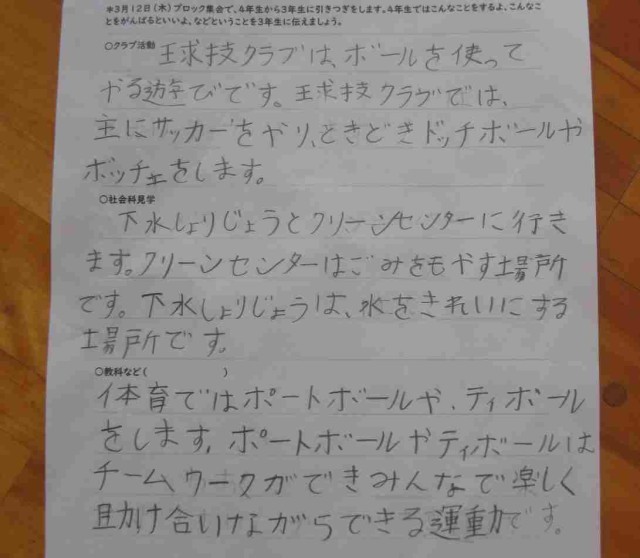 ＊3月12日(木)ブロック集会で、4年生から3年生に引きつぎをします。4年生ではこんなことをするよ、こんなこ
とをがんばるといいよ、などということを3年生に伝えましょう。
○クラブ活動
球技クラブは、ボールを使って
やる遊びです。球技クラブでは、
主にサッカーをやり、ときどきドッチボールや
ボッチェをします。
○社会科見学
下水しょりじょうとクリーンセンターに行き
ます。クリーンセンターはごみをもやす場所
です。下水しょりじょうは、水をきれいにする
場所です。
○教科など( )
体育ではポートボールや、ティボール
をします。ポートボールやティボールは
チームワークができみんなで楽しく
助け合いながらできる運動です。